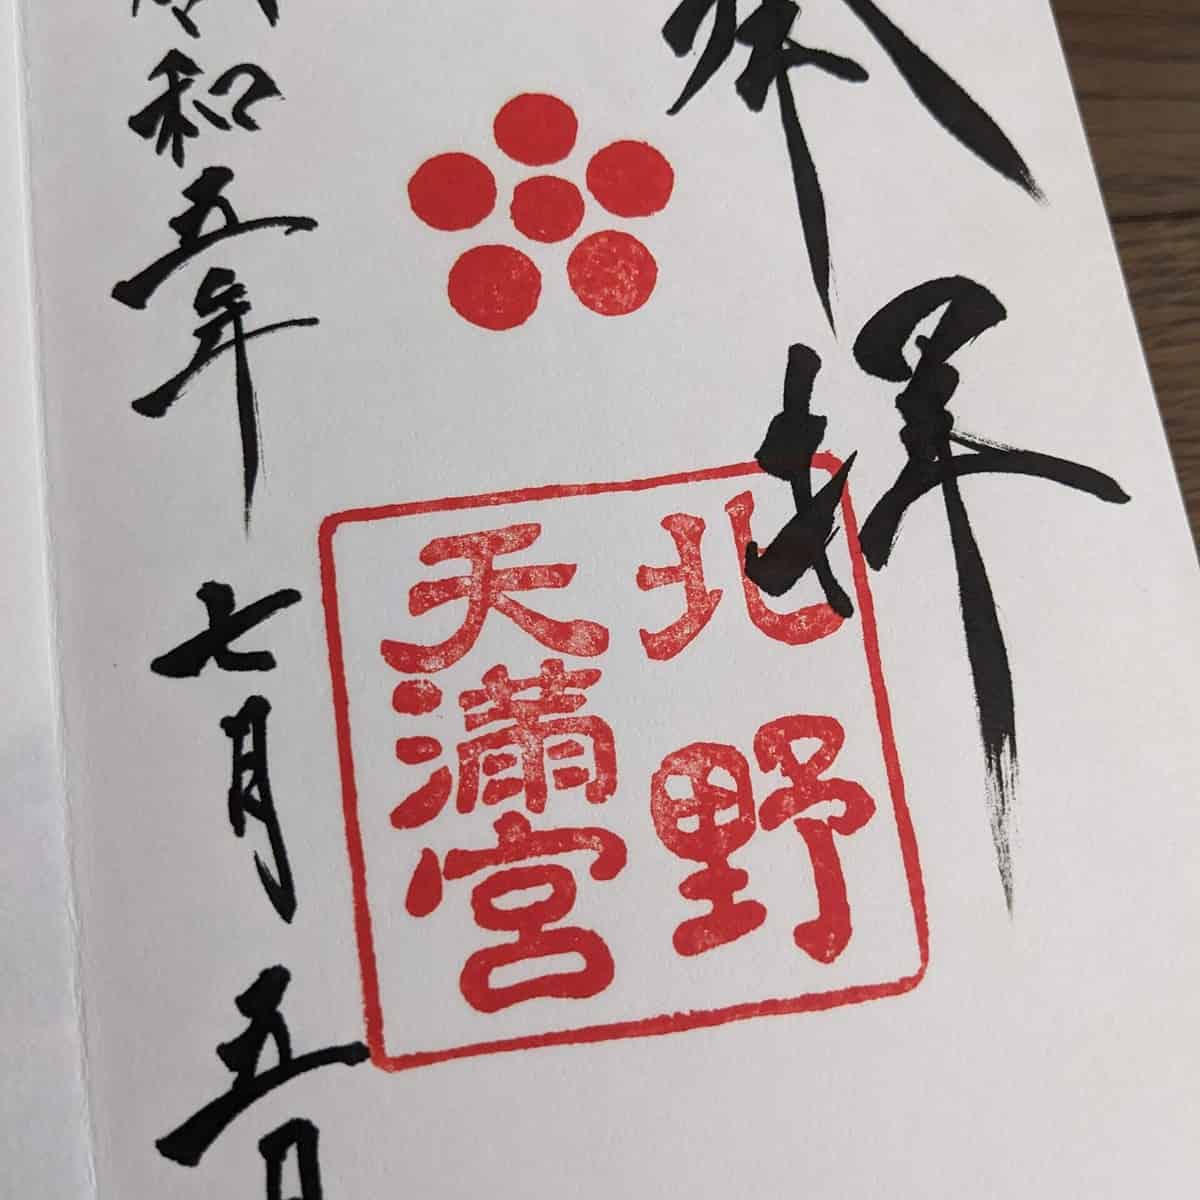 奉拝
北野
天満宮
令和五年七月五日